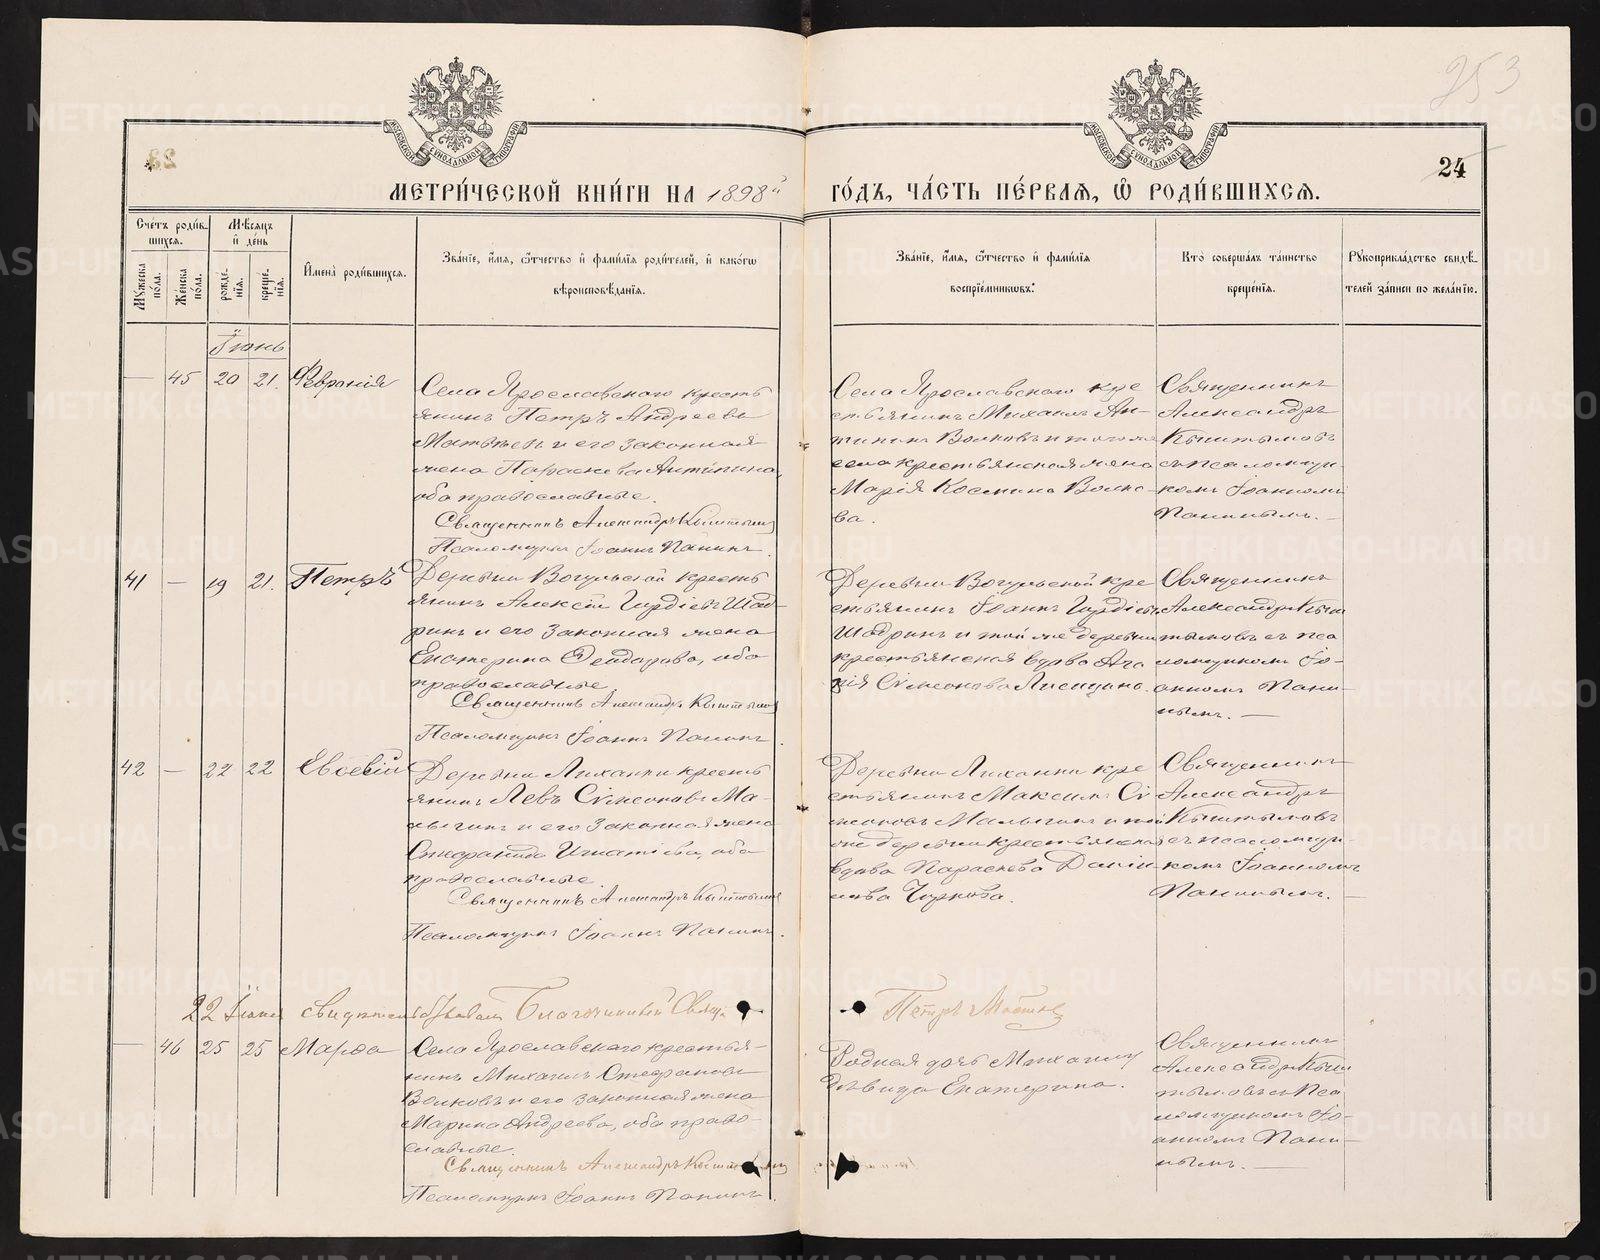 253
24
МЕТРИ́ЧЕСКОЙ КНИ́ГИ НА 1898й ГО́ДЪ, ЧА́СТЬ ПЕ́РВАѦ, Ѿ РОДИ́ВШИХСѦ.
Сче́тъ роди́в-
шихсѧ.
Мꙋжеска по́ла.
Же́нска по́ла.
Мѣ́сѧцъ и де́нь
рожде́-нїѧ.
креще́-нїѧ.
И҆мена̀ роди́вшихсѧ.
Зва́нїе, и҆́мѧ, ѻ҆́тчество и҆ фами́лїѧ роди́телей, и҆ како́гѡ
вѣроисповѣ́данїѧ.
Зва́нїе, и҆́мѧ, ѻ҆́тчество и҆ фами́лїѧ
воспрїе́мникѡвъ.
Кто̀ соверша́лъ та́инство
креще́нїѧ.
Рꙋкоприкла́дство свидѣ́-
телей за́писи по жела́нїю.
Іюнь
— 45 20 21. Феврония
Села Ярославскаго кресть
янинъ Петръ Андреевъ
Матвѣевъ и его законная
жена Параскева Антипина,
оба православные.
Священникъ Александръ Кыштымовъ
Псаломщикъ Іоаннъ Панинъ
Села Ярославскаго кре
стьянинъ Михаилъ Ан-
типинъ Волковъ и тогоже
села крестьянская жена
Марія Космина Волко-
ва.
Священникъ
Александръ
Кыштымовъ
съ псаломщи-
комъ Іоанномъ
Панинымъ. —
41 — 19 21. Петръ
Деревни Вогульской кресть
янинъ Алексій Гурдіевъ Шад-
ринъ и его законная жена
Екатерина Ѳеодорова, оба
православные
Священникъ Александръ Кыштымовъ
Псаломщикъ Іоаннъ Панинъ.
Деревни Вогульской кре
стьянинъ Іоаннъ Гурдіевъ
Шадринъ и той же деревни
крестьянская вдова Ага
пія Сімеонова Лисицина.
Священникъ
Александръ Кыш
тымовъ съ пса
ломщикомъ Іо-
анномъ Пани-
нымъ. —
42 — 22 22 Евсевій
Деревни Лиханки кресть
янинъ Левъ Сімеоновъ Ма-
лыгинъ и его законная жена
Стефанида Игнатіева, оба
православные
Священникъ Александръ Кыштымовъ
Псаломщикъ Іоаннъ Панинъ.
Деревни Лиханки кре
стьянинъ Максимъ Сі
меоновъ Малыгинъ и той
же деревни крестьянская
вдова Параскева Даніи-
лова Чиркова.
Священникъ
Александръ
Кыштымовъ
съ псаломщи-
комъ Іоанномъ
Панинымъ. —
22 Іюня свидѣтельствовалъ Благочинный Свящ. Петръ
— 46 25 25 Марѳа
Села Ярославскаго крестья-
нинъ Михаилъ Стефановъ
Волковъ и его законная жена
Марина Андреева, оба право-
славные.
Священникъ Александръ Кыштымовъ
Псаломщикъ Іоаннъ Панинъ.
Родная дочь Михаилу
дѣвица Екатерина.
Священникъ
Александръ Кыш
тымовъ съ пса
ломщикомъ Іо-
анномъ Пани-
нымъ. —
METRIKI.GASO-URAL.RU